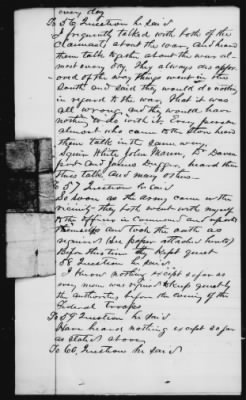 every day
To 56 Question he said
I frequently talked with both of the
claimants about the war, and heard
them talk together about the war al
most every day They always dis appr
oved of the way things went in the
South and said they would do nothing
in regard to the war, that it was
all wrong, and they would have
nothing to do with it Every person
almost who came to the store heard
them talk in the same way
Squire White John Mann, Dr Daven
port and James heard them
thus talk and many others
To 57 Question he said
So soon as the army came in the
vicinity they both went with myself
to the officers in Command and reported
themselves and took the oath as
required (See paper attached hereto)
Before this time they kept quiet
58 Question he said
I know nothing except so far as
every man was required to keep quiet by
the authorities before the coming of the
Federal troops
To 59 Question he said
Have heard nothing except so far
as stated above
To 60, Question he said